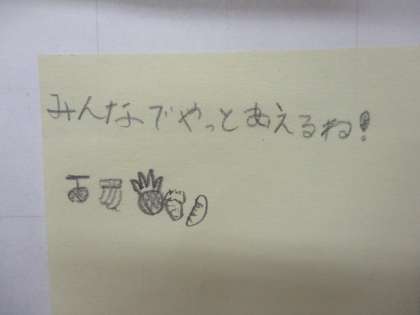 みんなでやっとあえるね!